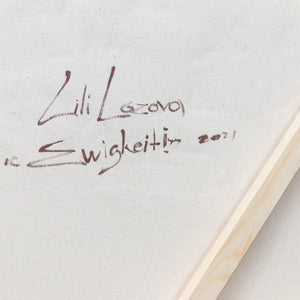 Lili Lazova
"Ewigkeit" 2021